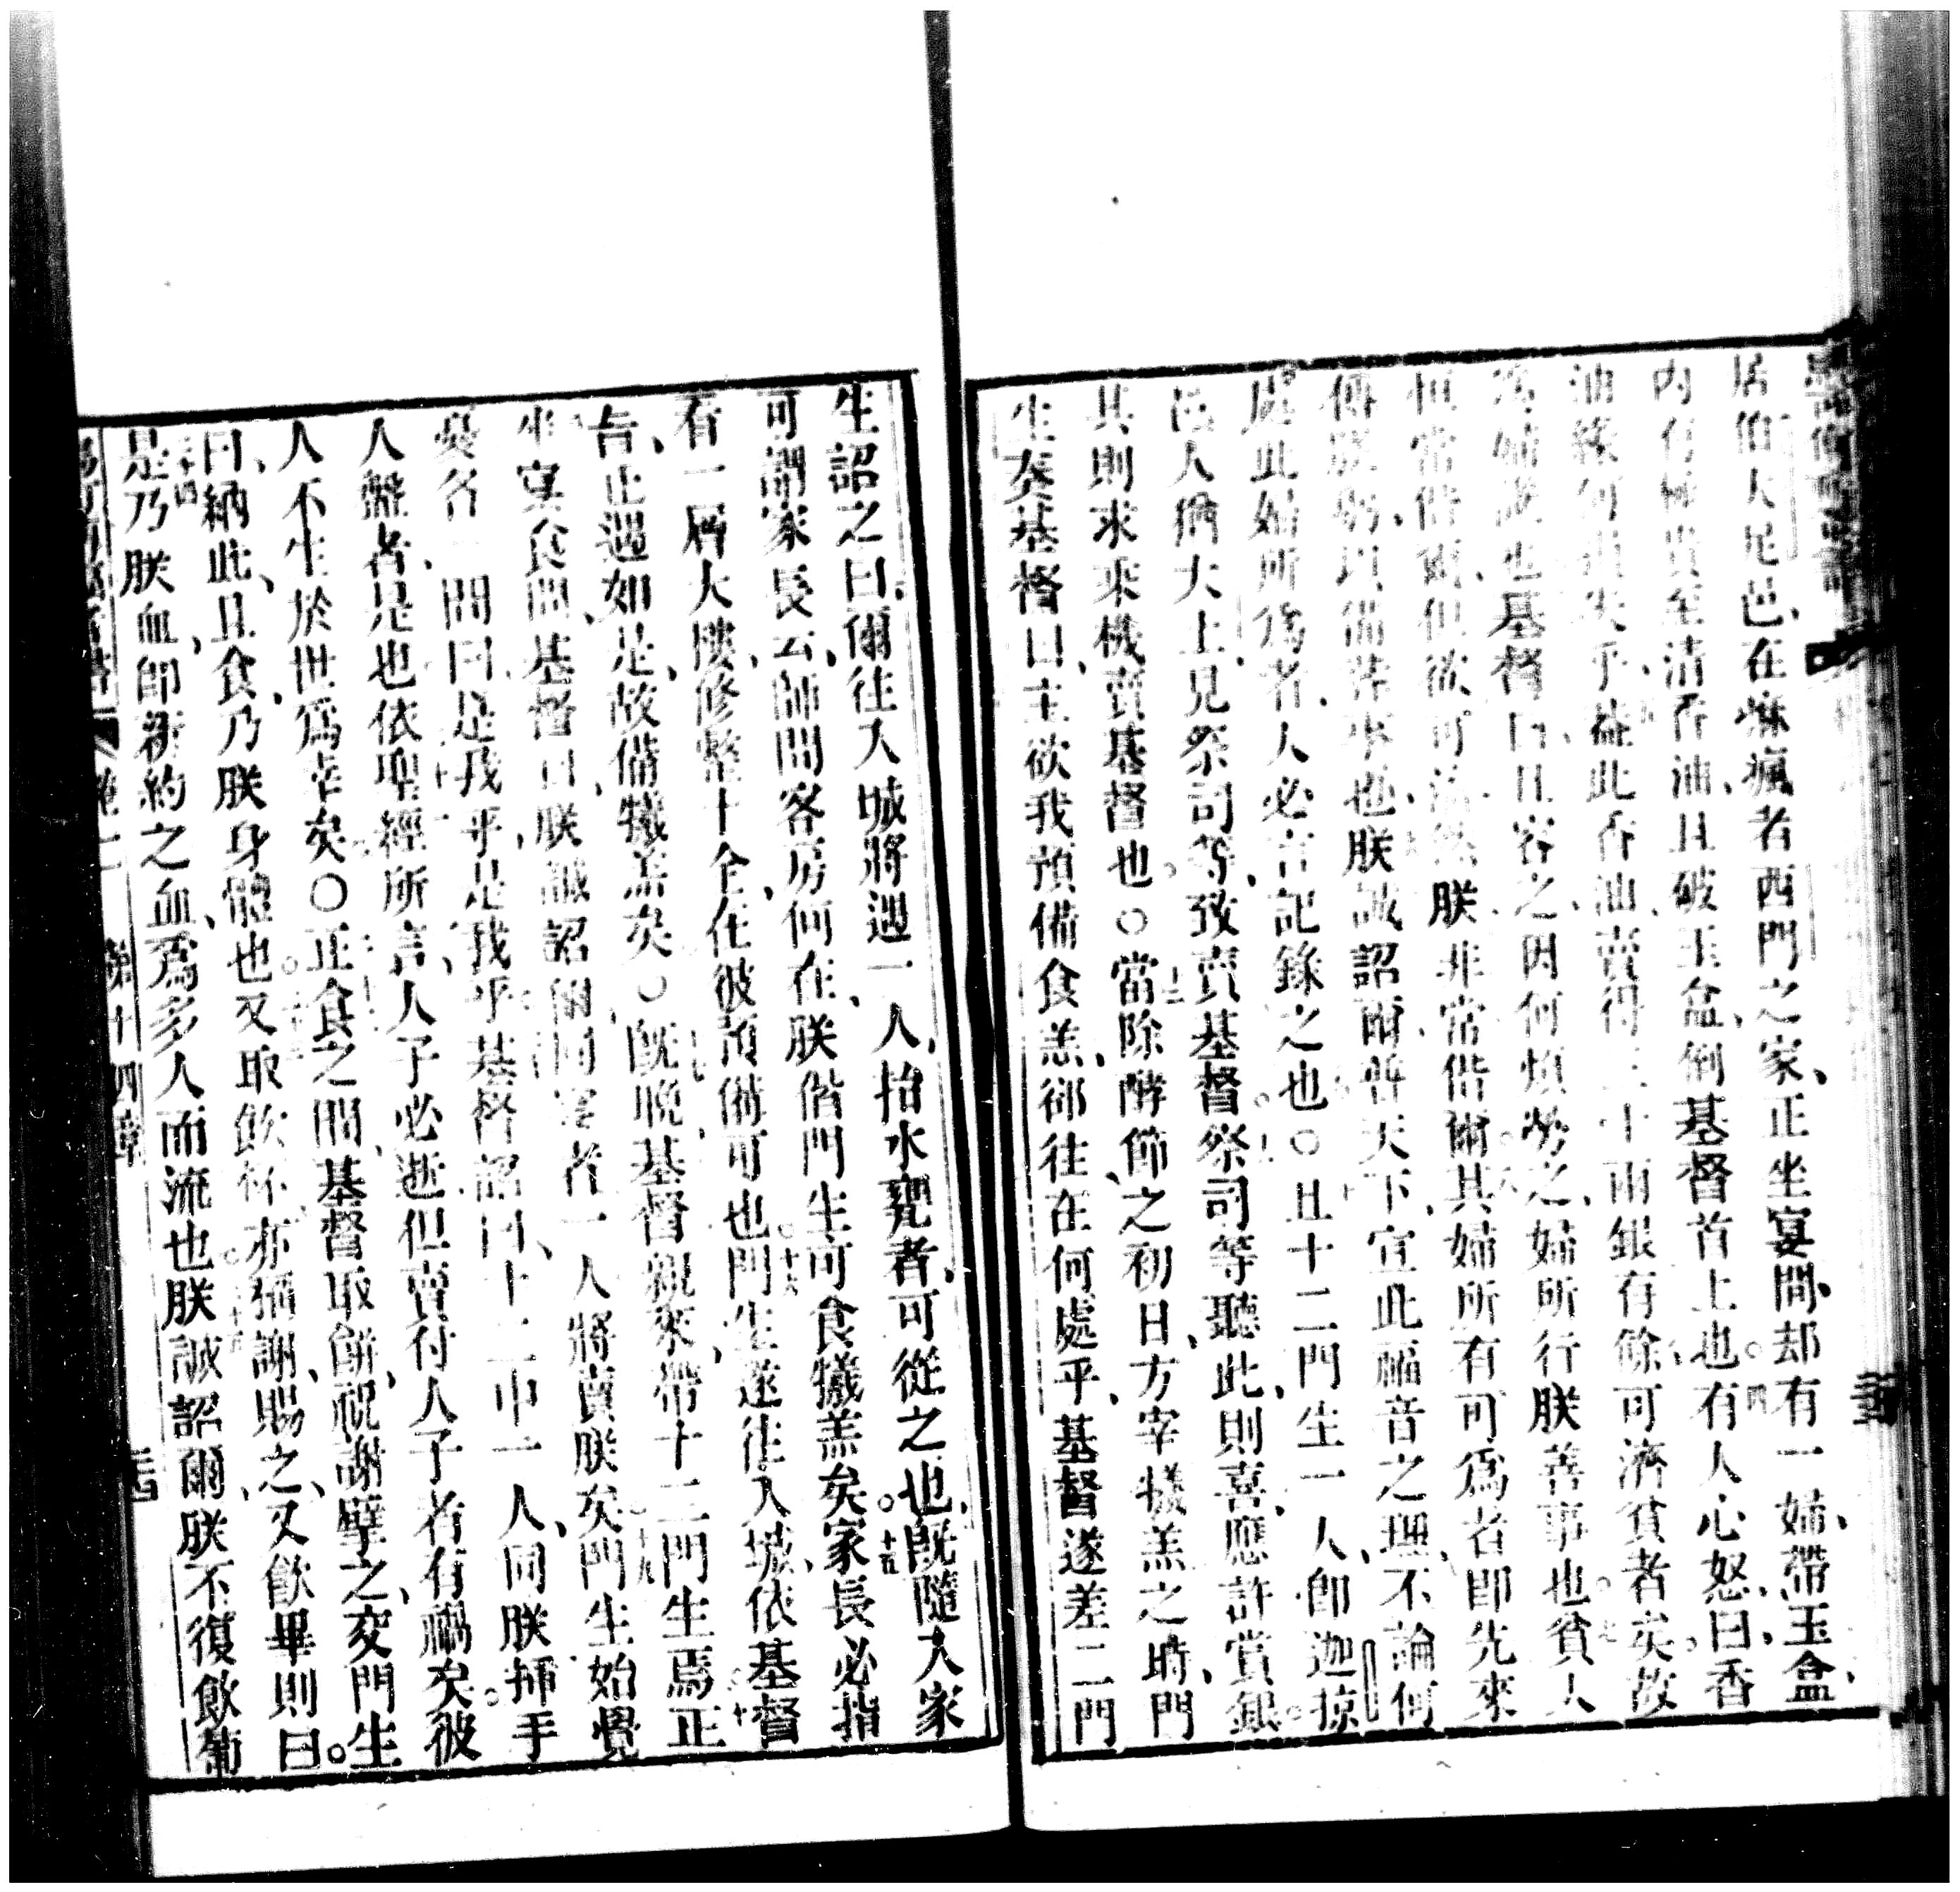 居伯大尼邑、在痳瘋者西門之家、正坐宴間、却有一婦、帶玉盒、
內有極貴至清香油、且破玉盒、倒基督首上也。有人心怒、曰、香
油緣何損失乎、蓋此香油、賣得三十兩銀有餘、可濟貧者矣。故
婦也基督曰、且容之、因何煩勞之、婦所行朕善事也。貧人
恒常偕爾、但欲可濟然、朕非常偕爾、其婦所有可爲者、即先來
傅朕躬、以備葬事也、朕誠詔爾、普天下、宣此福音之理、不論何
處、此婦所爲者、人必言記錄之也。〇且十二門生一人、即迦掠
人猶大、上見祭司等、致賣基督。祭司等聽此、則喜、應許賞銀。
其則求來機賣基督也。〇當除酵節之初日、方宰犧羔之時、門
生奏基督曰、主欲我預備食羔、卻往在何處乎、基督遂差二門
生詔之曰、爾往入城、將遇一人、抬水甕者、可從之也、旣隨入家
可謂家長云、師問客房何在、朕偕門生可食犧羔矣。家長必指
有一層大樓、修整十全、在彼預備可也。門生遂往入城、依基督
言、止遇如是、故備犧羔矣〇旣晚、基督親來、帶十二門生焉。正
坐宴食間、基督曰、朕誠詔爾、同宴者一人將賣朕矣。門生始覺
憂、各一問曰、是我乎、是我乎、基督詔曰、十二中一人、同朕揷手
人辭者是也、依聖經所言、人子必逝、但賣付人子者有禍矣。彼
人不生於世爲幸矣〇正食之間、基督取餅、祝謝擘之、交門生
曰、納此、且食、乃朕身體也。又取飲杯、亦祝謝、賜之、又飮畢、則曰。
是乃朕血、即新約之血、爲多人而流也。朕誠詔爾、朕不復飲葡
第十四章